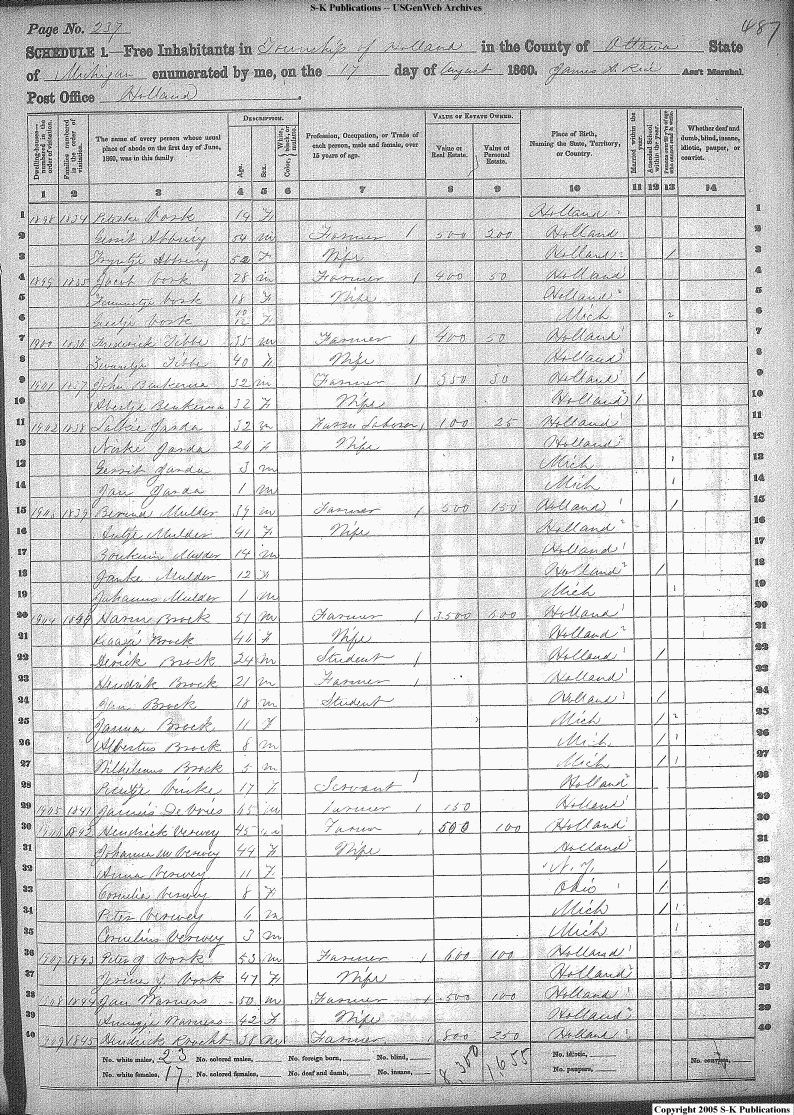 S-K Publications -- USGenWeb Archives
Page No. 237
487
SCHEDULE 1.—Free Inhabitants in Township of Holland in the County of Ottawa State
of Michigan enumerated by me, on the 17 day of August 1860. Ass't Marshal.
Post Office Holland
DESCRIPTION. VALUE OF ESTATE OWNED.
Dwelling-houses—numbered in the order of visitation. Families numbered in the order of visitation. The name of every person whose usual place of abode on the first day of June, 1860, was in this family Age. Sex. Color, White, black, or mulatto. Profession, Occupation, or Trade of each person, male and female, over 15 years of age. Value of Real Estate. Value of Personal Estate. Place of Birth, Naming the State, Territory, or Country. Married within the year. Attended School within the year. Whether deaf and dumb, blind, insane, idiotic, pauper, or convict.
1 2 3 4 5 6 7 8 9 10 11 12 13 14
1 1898 1834 Vork 19 F Holland 1
2 Gerrit Abbring 54 m Farmer 1 500 200 Holland 2
3 Abbring 52 F Wife Holland / 3
4 1899 1835 Jacob Vork 28 m Farmer 1 400 50 Holland 4
5 Vork 18 F Wife Holland 5
6 Vork 10/12 F Mich 2 6
7 1900 1836 Frederick Tibbe 35 m Farmer 1 400 50 Holland 7
8 Zwantje Tibbe 40 F Wife Holland 8
9 1901 1837 John Beukema 32 m Farmer 1 350 30 Holland / 9
10 Beukema 32 F Wife Holland / 10
11 1902 1838 Janda 32 m Farm Laborer 1 100 25 Holland 11
12 Janda 26 F Wife Holland 12
13 Gerrit Janda 3 m Mich 1 13
14 Jan Janda 1 m Mich 1 14
15 1903 1839 Berend Mulder 39 m Farmer 1 500 150 Holland / 15
16 Mulder 41 F Wife Holland 16
17 Mulder 14 m Holland 17
18 Janke Mulder 12 F Holland / 18
19 Johannis Mulder 1 m Mich 1 19
20 1904 1840 Harm Brock 51 m Farmer 1 3500 500 Holland 20
21 Brock 46 F Wife Holland 21
22 Derick Brock 24 m Student 1 Holland / 22
23 Hendrick Brock 21 m Farmer 1 Holland 23
24 Jan Brock 18 m Student Holland / 24
25 Janna Brock 11 F Mich / 2 25
26 Albertus Brock 8 m Mich / 1 26
27 Wilhelmus Brock 5 m Mich / 1 27
28 17 F Servant 1 Holland 28
29 1905 1841 De Vries 65 m Farmer 1 150 Holland 29
30 1906 1842 Hendrick Verwey 45 m Farmer 1 500 100 Holland 30
31 Johanna M Verwey 44 F Wife Holland 31
32 Anna Verwey 11 F N.Y. / 32
33 Cornelia Verwey 8 F Ohio / 33
34 Peter Verwey 6 m Mich / 1 34
35 Cornelius Verwey 3 m Mich 1 35
36 1907 1843 Peter J Vork 53 m Farmer 1 600 100 Holland 36
37 J Vork 47 F Wife Holland 37
38 1908 1844 Jan Warners 50 m Farmer 1 500 100 Holland 38
39 Warners 42 F Wife Holland 39
40 1909 1845 Hendrick 38 m Farmer 1 800 250 Holland 40
No. white males, 23 No. colored males, No. foreign born, No. blind, 8,300 1,655 No. idiotic, No. convicts,
No. white females, 17 No. colored females, No. deaf and dumb, No. insane, No. paupers,
Copyright 2005 S-K Publications